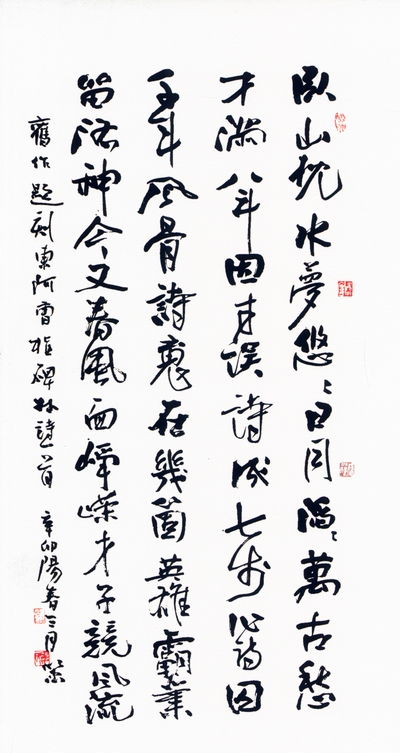 臥山枕水夢悠〻日月滔〻萬古愁
才滿八斗因才誤詩成七步化詩囚
千年風骨詩魂在幾箇英雄霸業
留洛神今又春風面崢嶸才子競風流
舊作題刻東阿曹植碑林詩一首 辛卯陽春三月